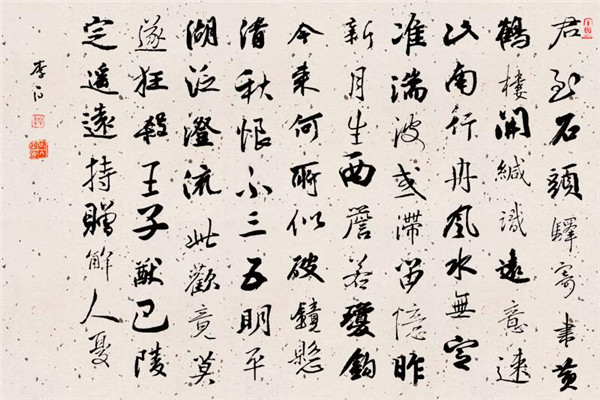 君至石頭驛寄書黄
鶴樓開緘識遠意速
此南行舟風水無定
准湍波或滞留憶昨
新月生西簷若瓊鉤
今来何所似破鏡懸
清秋恨不三五明平
湖泛澄流此歡竟莫
遂狂殺王子猷巴陵
定遥遠持贈解人憂
李白